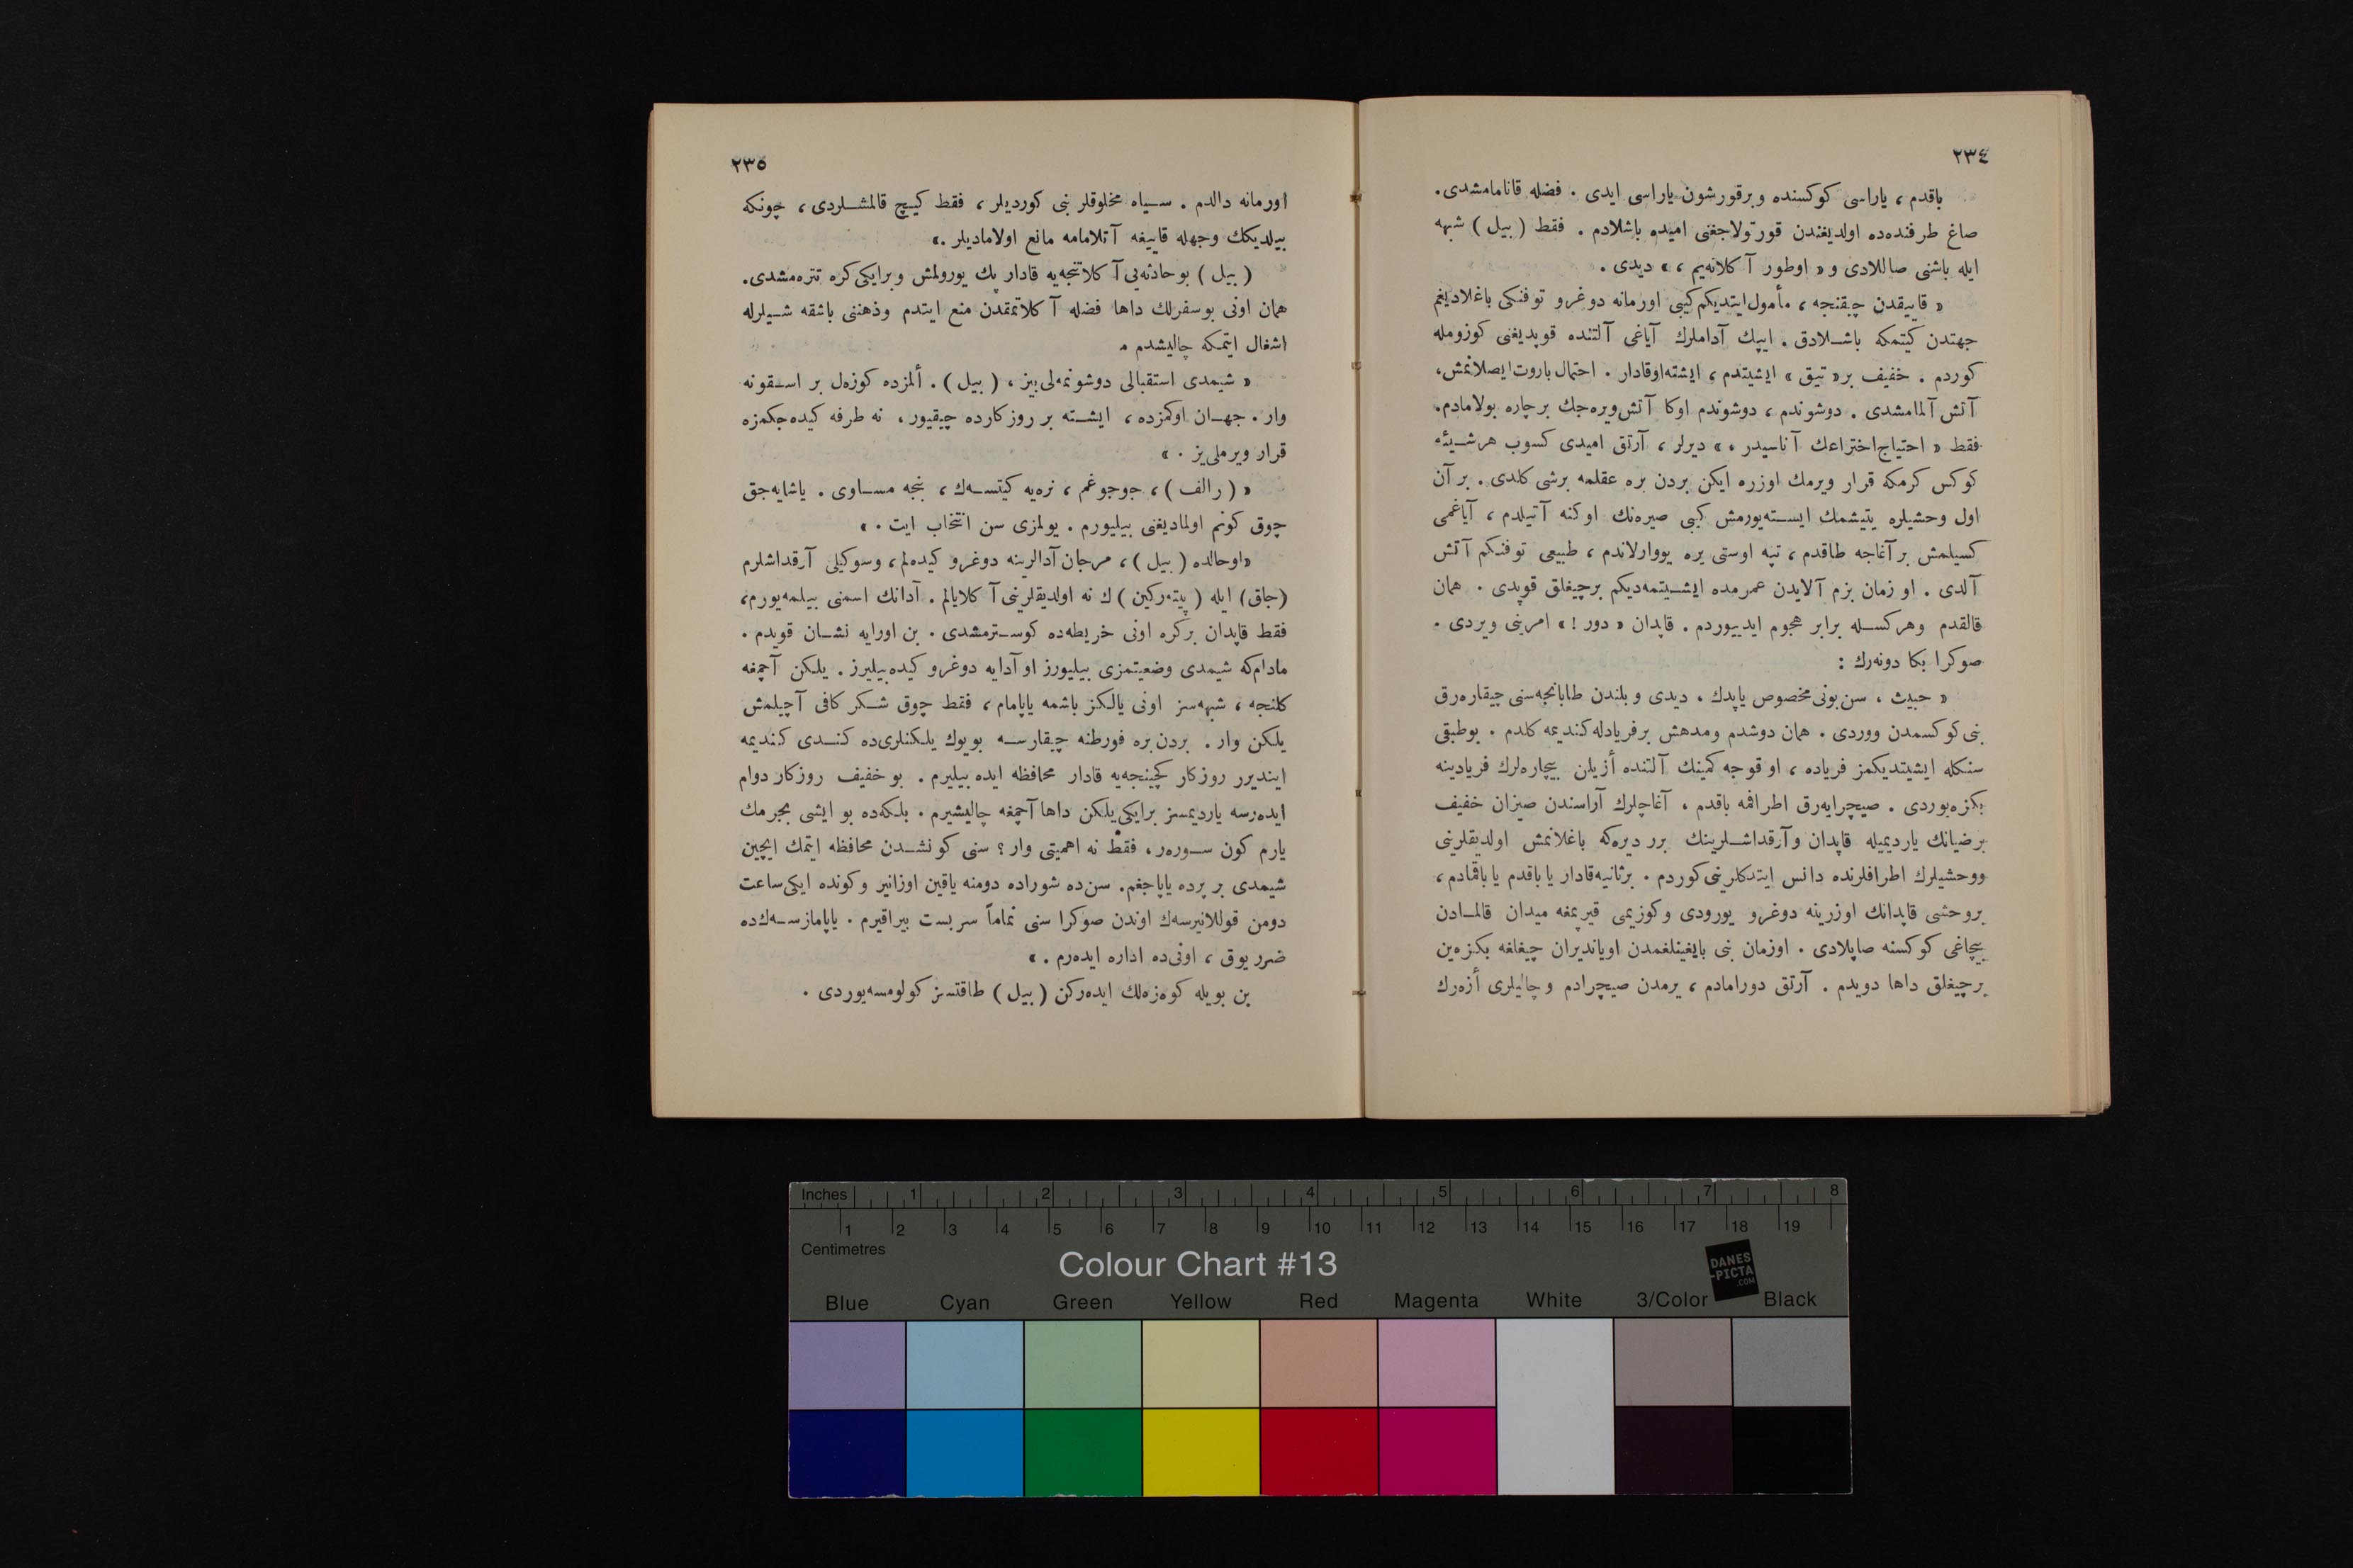 ٢٣٤
باقدم ، ياراسى كوكسنده وبرقورشون ياراسى ايدى . فضله قانامامشدى.
صاغ طرفنده‌ده اولديغندن قورتولاجغنى اميده باشلادم . فقط ( بيل ) شبهه
ايله باشنى صاللادى و « اوطور آ كلاته‌يم ، » ديدى .
« قاييقدن چيقنجه ، مأمول‌ايتديكم‌كيبى اورمانه دوغرو توفنكى باغلاديغم
جهتدن كيتمكه باشــلادق . ايپك آداملرك آياغى آلتنده قوپديغنى كوزومله
كوردم . خفيف بر« تيق » ايشيتدم ، ايشته‌اوقادار . احتمال‌باروت‌ايصلانمش،
آتش آلمامشدى . دوشوندم ، دوشوندم اوكا آتش‌ويره‌جك برچاره بولامادم.
فقط « احتياج‌اختراعك آناسيدر ، » ديرلر ، آرتق اميدى كسوب هرشــيئه
كوكس كرمكه قرار ويرمك اوزره ايكن بردن بره عقلمه برشى كلدى . بر آن
اول وحشيلره يتيشمك ايســته‌يورمش كبى صيره‌نك اوكنه آتيلدم ، آياغمى
كسيلمش بر آغاجه طاقدم ، تپه اوستى يره يووارلاندم ، طبيعى توفنكم آتش
آلدى . او زمان بزم آلايدن عمرمده ايشــيتمه‌ديكم برچيغلق قوپدى . همان
قالقدم وهركســله برابر هجوم ايدييوردم . قاپدان « دور ! » امرينى ويردى .
صوكرا بكا دونه‌رك :
« خبيث ، سن‌بونى‌مخصوص ياپدك ، ديدى و بلندن طابانجه‌سنى چيقاره‌رق
بنى‌كوكسمدن ووردى . همان دوشدم ومدهش برفريادله‌كنديمه كلدم . بوطبقى
سنكله ايشيتديكمز فرياده ، او قوجه كمينك آلتنده أزيلن بيچاره‌لرك فريادينه
بكزه‌يوردى . صيچرايه‌رق اطرافمه باقدم ، آغاچلرك آراسندن صيزان خفيف
برضيانك يارديميله قاپدان وآرقداشــلرينك برر ديره‌كه باغلانمش اولديقلرينى
ووحشيلرك اطرافلرنده دانس ايتدكلرينى‌كوردم . برثانيه‌قادار يا باقدم يا باقمادم،
بروحشى قاپدانك اوزرينه دوغرو يورودى وكوزيمى قيرپمغه ميدان قالمــادن
بيچاغى كوكسنه صاپلادى . اوزمان بنى بايغينلغمدن اوياندیران چيغلغه بكزه‌ين
برچيغلق داها دويدم . آرتق دورامادم ، يرمدن صيچرادم و چاليلرى أزه‌رك
٢٣٥
اورمانه دالدم . ســياه مخلوقلر بنى كورديلر ، فقط كيــچ قالمشــلردى ، چونكه
بيلديكك وجهله قاييغه آتلامامه مانع اولاماديلر .»
( بيل ) بوحادثه‌يى آ كلاتنجه‌يه قادار پك يورولمش وبرايكى‌كره تتره‌مشدى.
همان اونى بوسفرلك داها فضله آ كلاتمقدن منع ايتدم وذهننى باشقه شــيلرله
اشغال ايتمكه چاليشدم .
« شيمدى استقبالى دوشونمه‌لى‌ييز ، ( بيل ) . ألمزده كوزه‌ل بر اســقونه
وار . جهــان اوكمزده ، ايشــته بر روزكارده چيقيور ، نه طرفه كيده‌جكمزه
قرار ويرملى‌يز . »
« ( رالف ) ، جوجوغم ، نره‌يه كيتســه‌ك ، بنجه مســاوى . ياشايه‌جق
چوق كونم اولماديغنى بيليورم . يولمزى سن انتخاب ايت . »
«اوحالده ( بيل ) ، مرجان آدالرينه دوغرو كيده‌لم ، وسوكيلى آرقداشلرم
(جاق) ايله ( پيته‌ركين ) ك نه اولديقلرينى آ كلايالم . آدانك اسمنى بيلمه‌يورم،
فقط قاپدان بركره اونى خريطه‌ده كوســترمشدى . بن اورايه نشــان قويدم .
مادام‌كه شيمدى وضعيتمزى بيليورز او آدايه دوغرو كيده‌بيليرز . يلكن آچمغه
كلنجه ، شبهه‌سز اونى يالكز باشمه ياپامام ، فقط چوق شــكر كافى آچيلمش
يلكن وار . بردن بره فورطنه چيقارســه بويوك يلكنلرى‌ده كنــدى كنديمه
اينديرر روزكار كچينجه‌يه قادار محافظه ايده‌بيليرم . بو خفيف روزكار دوام
ايده‌رسه يارديمسز برايكى‌يلكن داها آچمغه چاليشيرم . بلكه‌ده بو ايشى بجرمك
يارم كون ســوره‌ر ، فقط نه اهميتى وار ؟ سنى كونشــدن محافظه ايتمك ايچين
شيمدى بر پرده ياپاجغم. سن‌ده شوراده دومنه ياقين اوزانير وكونده ايكى‌ساعت
دومن قوللانيرسه‌ك اوندن صوكرا سنى تماماً سربست بيراقيرم . ياپمازســه‌ك‌ده
ضرر يوق ، اونى‌ده اداره ايده‌رم . »
بن بويله كوه‌زه‌لك ايده‌ركن ( بيل ) طاقتسز كولومسه‌يوردى .
Inches 1 2 3 4 5 6 7 8
1 2 3 4 5 6 7 8 9 10 11 12 13 14 15 16 17 18 19
Centimetres
Colour Chart #13
DANES
-PICTA
.COM
Blue Cyan Green Yellow Red Magenta White 3/Color Black